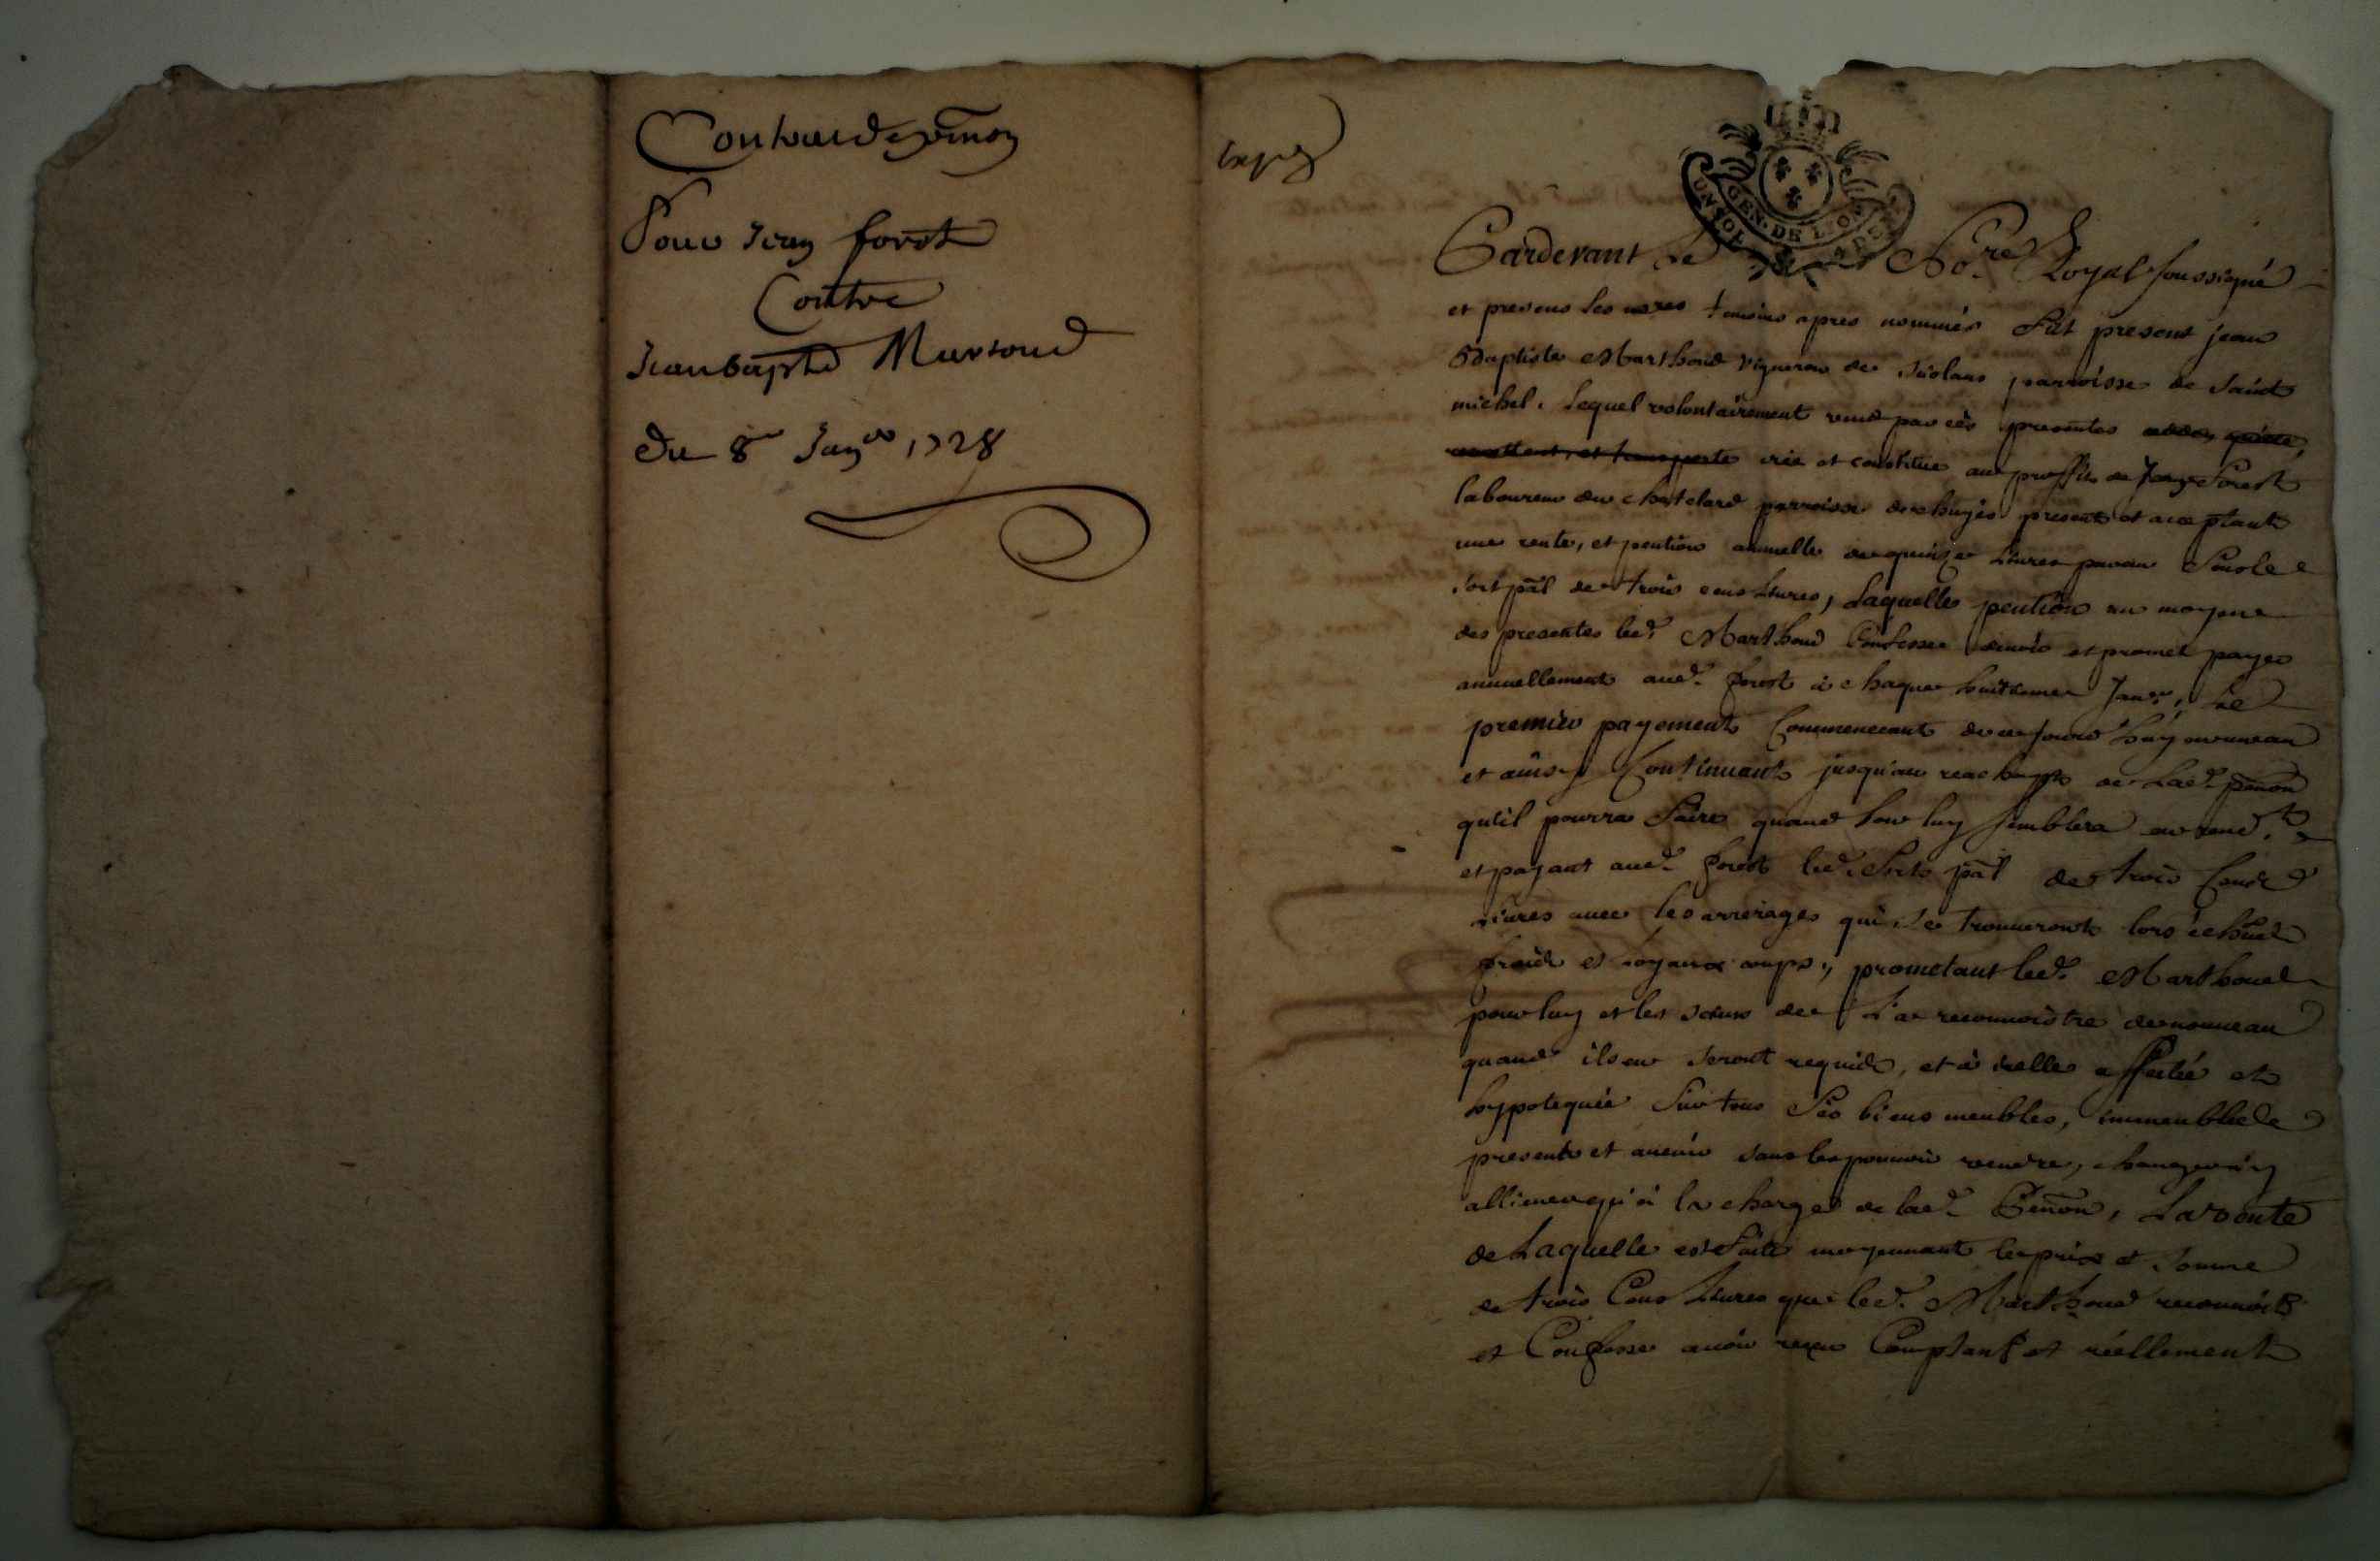 Contract de pention
Pour Jean forest
Contre
Jean baptte Martoud
Du 8e Janer 1728
exped
GEN. DE LION
Pardevant Le No.re Royal soussigné
et presens les temoins apres nommés fut present jean
Baptiste Marthoud vigneron de parroisse de saint
michel. Lequel volontairement vend par ces presentes
crée et constitue au proffit de Jean forest
laboureur du chatelard parroisse de present et acceptant
une rente, et pention annuelle de quinze Livres pavan
sort pãl de trois cens Livres, Laquelle pention au moyens
des presentes led. Marthoud Confesse devoir et promet payer
annuellement aud. forest à chaque huitieme Janer, Le
premier payement Commencant de ce jourd'huy en un an
et ainsy Continuant jusqu'au reachapt de Lad. pñion
qu'il pourra faire quand bon luy semblera en rend.t
et payant aud. forest led. sort pãl de trois Cens
Livres avec les arrerages qui se trouveront lors échus
frais et loyaux coups, prometant led. Marthoud
pour luy et les siens de La reconnoistre de nouveau
quand ils en seront requis, et à icelle affectée et
hypotequée sur tous ses biens meubles, immeubles
presents et avenir sans les pouvoir vendre, changer ny
alliener qu'à la charge de lad. Peñion, La vente
de Laquelle est faite moyennant le prix et somme
de trois Cens Livres que led. Marthoud reconnoit
et Confesse avoir reçeu Comptant et réellement